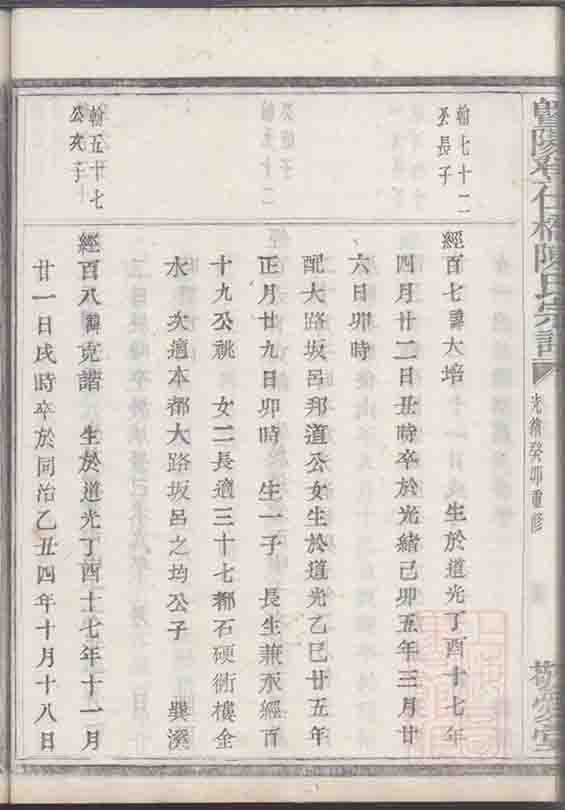 暨陽孝仁橋陳氏宗譜
光緒癸卯重修
翰七十二
公長子
經百七諱大培 生於道光丁酉十七年
四月廿二日丑時卒於光緒己卯五年三月廿
六日卯時
配大路坂呂邦道公女生於道光乙巳廿五年
正月廿九日卯時 生一子 長生兼承經百
十九公祧 女二長適三十七都石硬街樓金
水 次適本都大路坂呂之均公子 巽溪
翰五十七
公次子
經百八諱克諧 生於道光丁酉十七年十一月
廿一日戌時卒於同治乙丑四年十月十八日